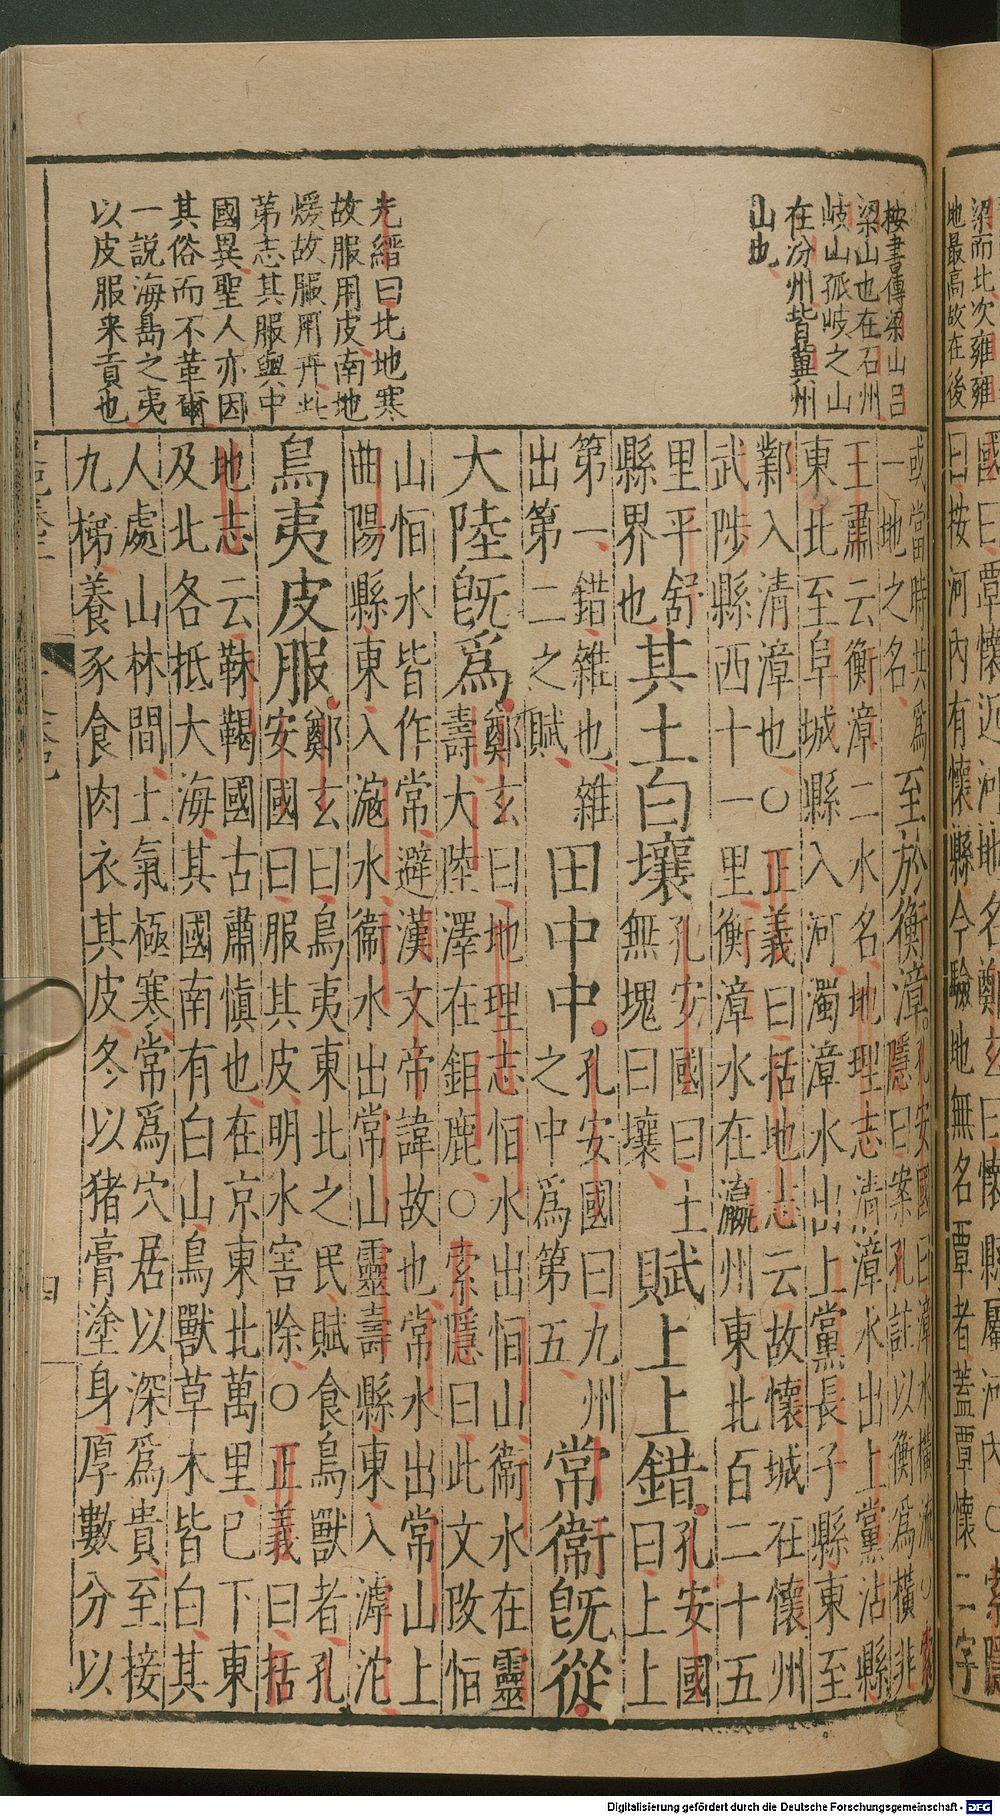 梁而北次雍雍
地最高故在後
國曰覃懷近河地名鄭玄曰懷縣屬河內○索隱
曰按河內有懷縣今驗地無名覃者蓋覃懷二字
按書傳梁山呂
梁山也在石州
岐山孤岐之山
在汾州皆冀州
山也
先縉曰北地寒
故服用皮南地
煖故服用卉此
第志其服與中
國異聖人亦因
其俗而不革爾
一說海島之夷
以皮服来貢也
或當時共爲
一地之名
至於衡漳
孔安國曰漳水橫流○索
隱曰案孔註以衡爲橫非
王肅云衡漳二水名地理志清漳水出上黨沾縣
東北至阜城縣入河濁漳水出上黨長子縣東至
鄴入清漳也○正義曰括地志云故懷城在懷州
武陟縣西十一里衡漳水在瀛州東北百二十五
里平舒
縣界也
其土白壤
孔安國曰土
無塊曰壤
賦上上錯
孔安國
曰上上
第一錯雜也雜
出第二之賦
田中中
孔安國曰九州
之中爲第五
常衞旣從
大陸旣爲
鄭玄曰地理志恒水出恒山衞水在靈
壽大陸澤在鉅鹿○索隱曰此文改恒
山恒水皆作常避漢文帝諱故也常水出常山上
曲陽縣東入滱水衞水出常山靈壽縣東入滹沱
鳥夷皮服
鄭玄曰鳥夷東北之民賦食鳥獸者孔
安國曰服其皮明水害除○正義曰括
地志云靺鞨國古肅慎也在京東北萬里已下東
及北各抵大海其國南有白山鳥獸草木皆白其
人處山林間土氣極寒常爲穴居以深爲貴至接
九梯養豕食肉衣其皮冬以猪膏塗身厚數分以
四
Digitalisierung gefördert durch die Deutsche Forschungsgemeinschaft - DFG